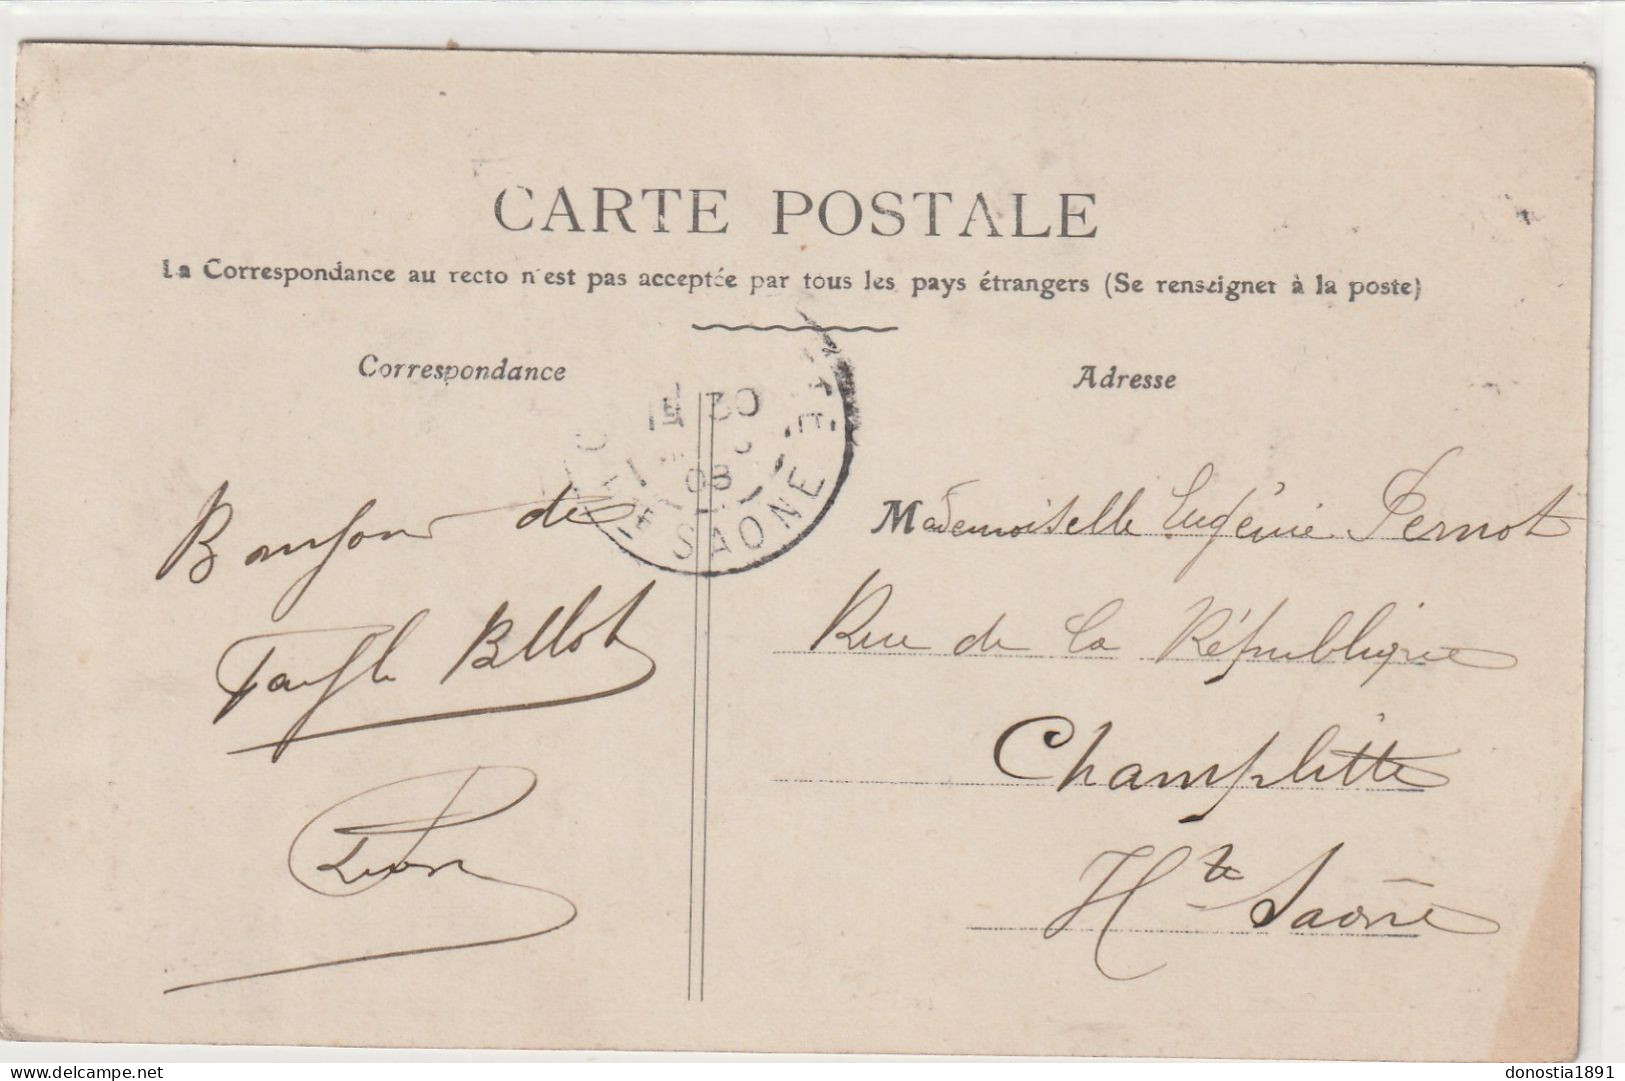 CARTE POSTALE
La Correspondance au recto n'est pas acceptée par tous les pays étrangers (Se renseigner à la poste)
Correspondance
Adresse
30
08
SAONE
Bonjour de
Fayl Billot
Léon
Mademoiselle Eugénie Pernot
Rue de la République
Champlitte
Hte Saône
donostia1891